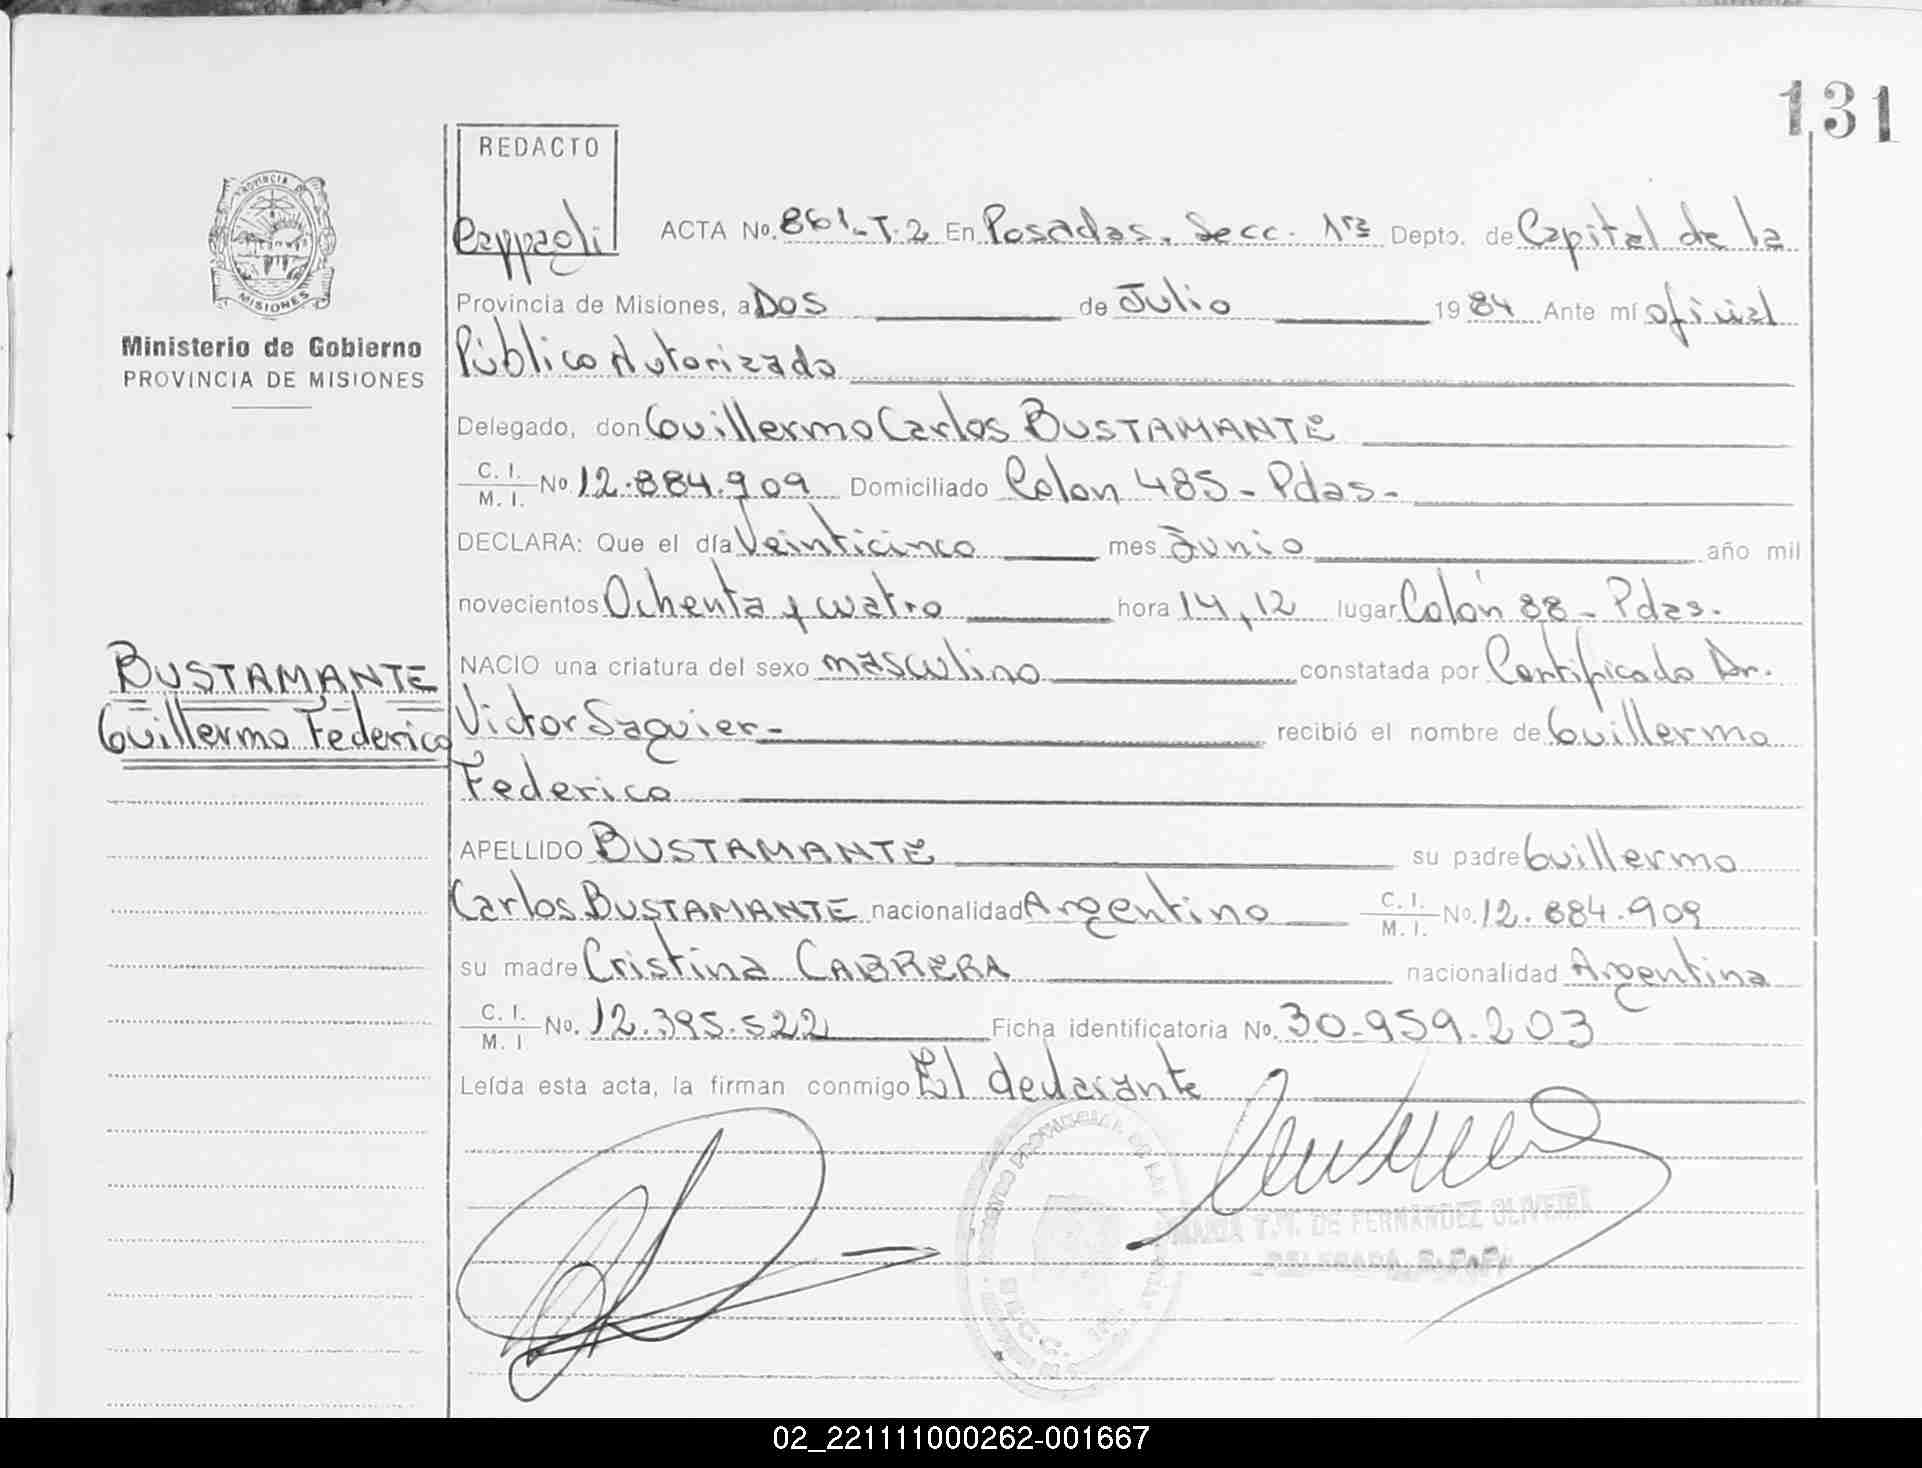 131
REDACTO
Cappaoli
PROVINCIA DE
MISIONES
Ministerio de Gobierno
PROVINCIA DE MISIONES
ACTA No. 861-T.2 En Posadas. Secc. 1ra Depto. de Capital de la
Provincia de Misiones, a Dos de Julio 1984 Ante mí oficial
Público Autorizado
Delegado, don Guillermo Carlos BUSTAMANTE
C. I. M. I. No 12.884.909 Domiciliado Colon 485 - Pdas -
DECLARA: Que el día Veinticinco mes Junio año mil
novecientos Ochenta y cuatro hora 14,12 lugar Colón 88 - Pdas.
NACIO una criatura del sexo masculino constatada por Certificado Dr.
Victor Saguier - recibió el nombre de Guillermo
Federico
BUSTAMANTE
Guillermo Federico
APELLIDO BUSTAMANTE su padre Guillermo
Carlos BUSTAMANTE nacionalidad Argentino C. I. M. I. No. 12.884.909
su madre Cristina CABRERA nacionalidad Argentina
C. I. M. I No. 12.395.522 Ficha identificatoria No. 30-959.203
Leída esta acta, la firman conmigo El declarante
MARIA T.V. DE FERNANDEZ OLIVEIRA
DELEGADA
02_221111000262-001667